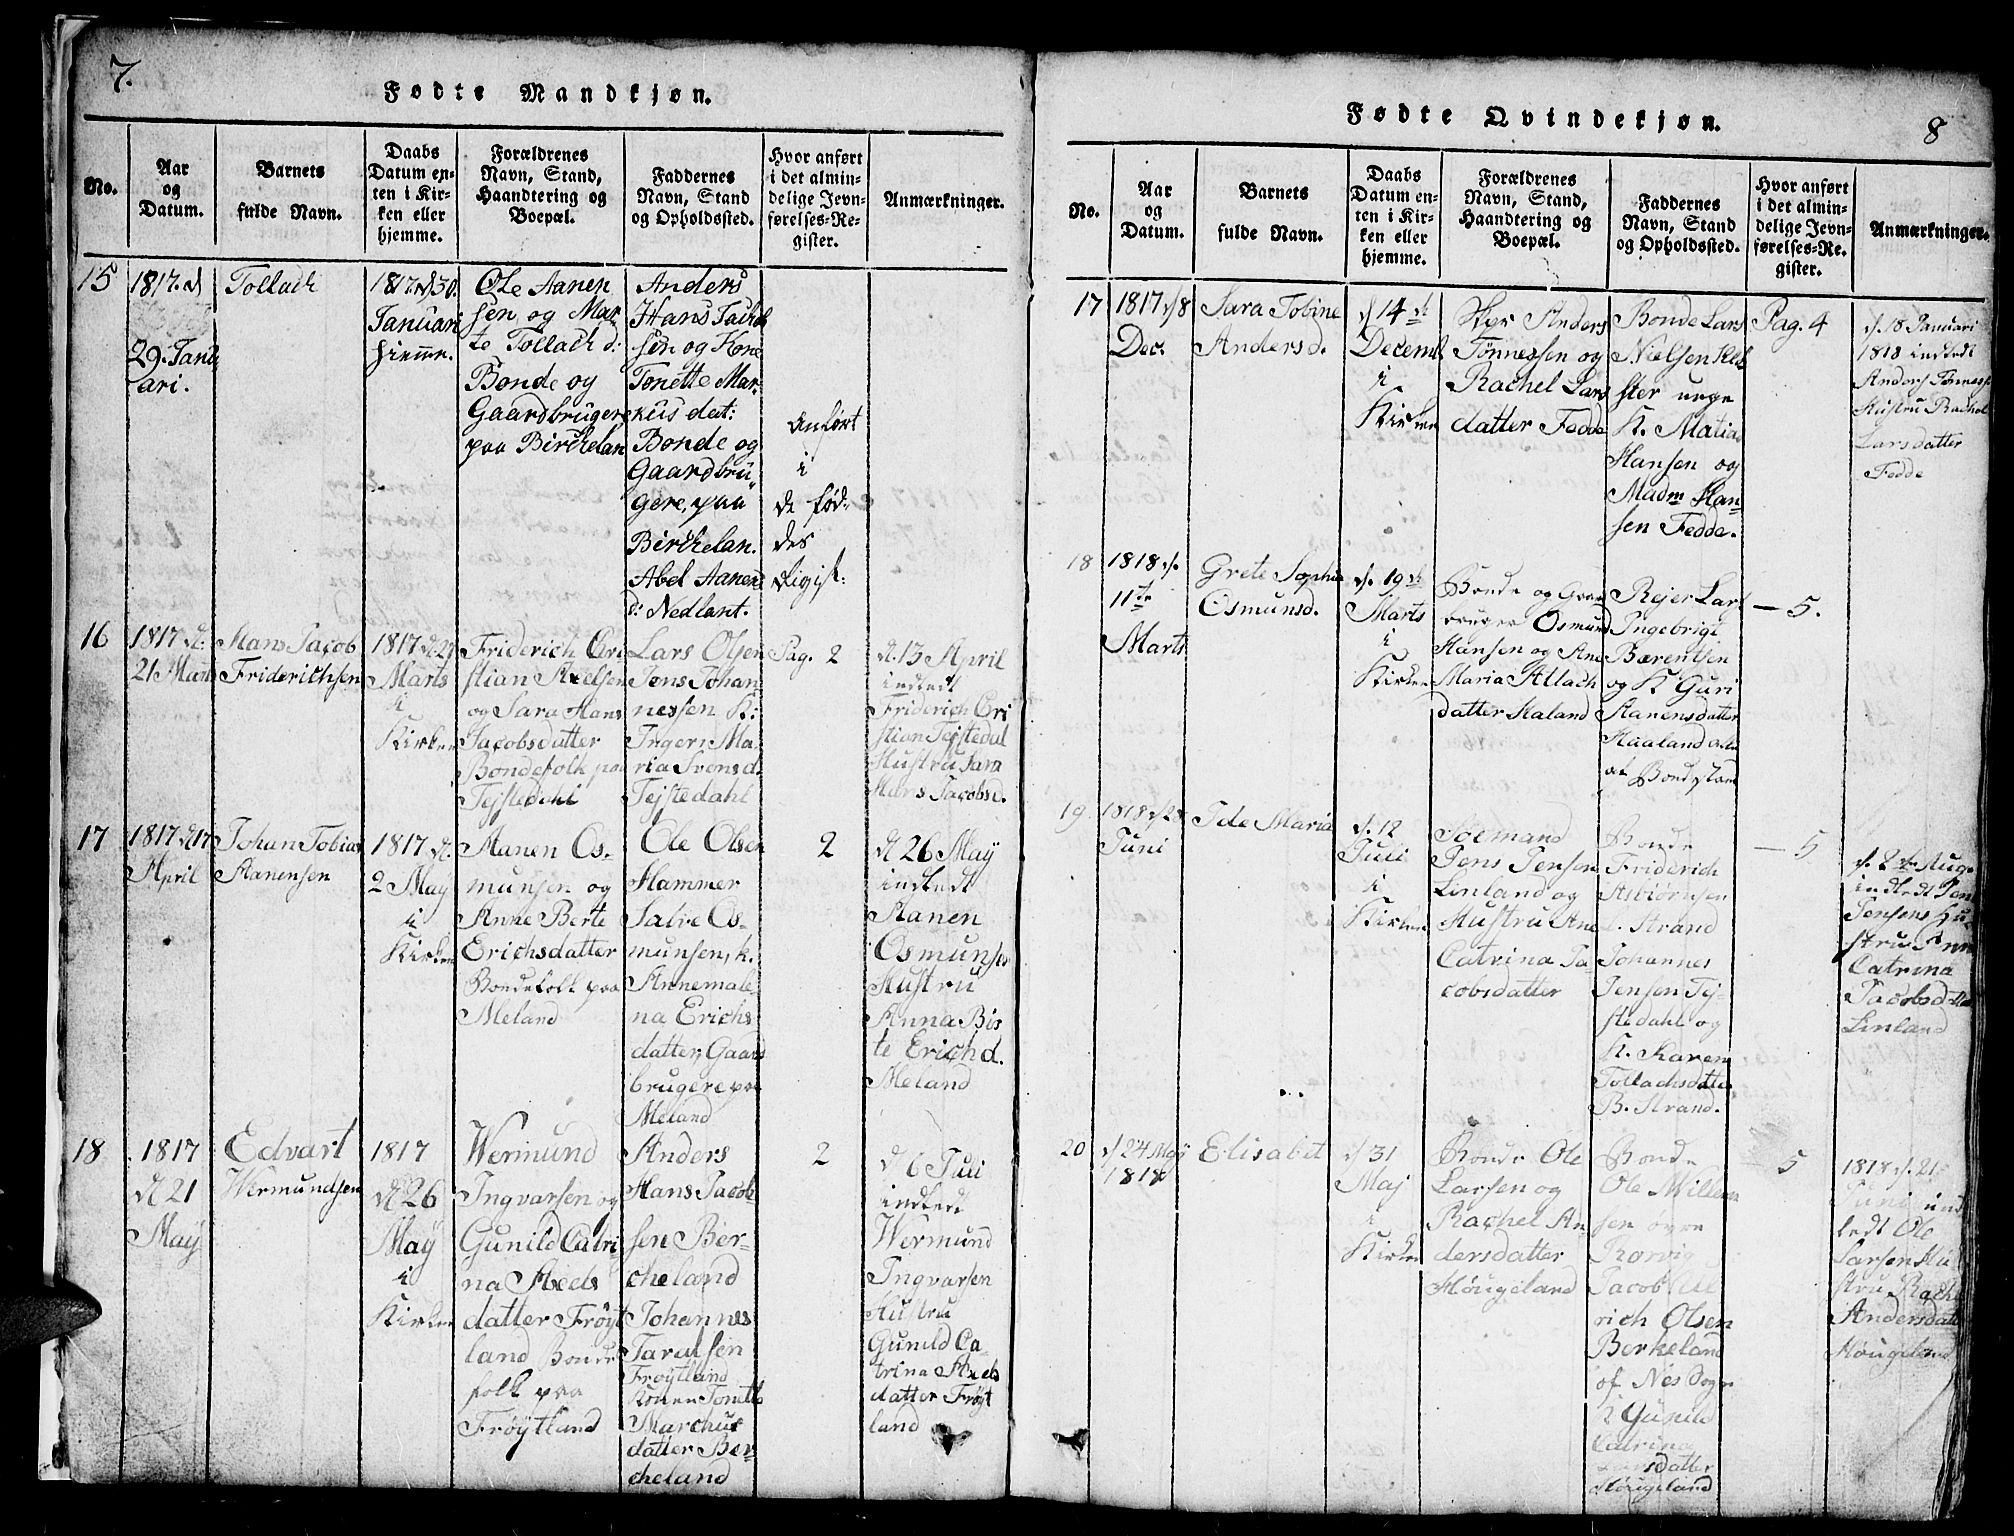 7.
Fødte Mandkjøn.
No.
Aar
og
Datum.
Barnets
fulde Navn.
Daabs
Datum en-
ten i Kir-
ken eller
hjemme.
Forældrenes
Navn, Stand,
Haandtering og
Boepæl.
Faddernes
Navn, Stand
og Opholdssted.
Hvor anført
i det almin-
delige Jevn-
førelses-Re-
gister.
Anmærkninger.
15
1817. d
29. Janu
ari.
Tollach
1817. d 30.
Januari
hiemme.
Ole Aanen
sen og Mar
te Tollach d:
Bonde og
Gaardbrugere
paa Birchelan
Anders
Hans Jacob
sen og Kone
Tonette Mar-
kus dat:
Bonde og
Gaardbru-
gere, paa
Birchelan.
Abel Aanens
d: Nedlant.
anført
i
de fød-
des
Ligist:
16
1817 d.
21 Marts
Hans Jacob
Friderichsen
1817 d. 27
Marts
i
Kirken
Friderich Cri
stian Axelsen
og Sara Hans
Jacobsdatter
Bondefolk paa
Tejstedahl
Lars Olsen
Jens Johan
nessen K:
Ingeri Ma-
ria Svensd.
Tejstedahl
Pag. 2
d. 13 April
indledt
Friderich Cri
stian Tejstedal
Hustru Sara
Hans Jacobsd.
17
1817 d 17
April
Johan Tobias
Aanensen
1817 d.
2 May
i
Kirken
Aanen Os-
munsen og
Anne Berte
Erichsdatter
Bondefolk paa
Meland
Ole Olsen
Hammer
Salve Os-
munsen, k.
Annemale-
na Erichs
datter, Gaard
brugere paa
Meland
2
d 26 May
indledt
Aanen
Osmunsen
Hustru
Anna Bir
te Erichd.
Meland
18
1817
d 21
May
Edvart
Wermundsen
1817
d 26
May
i
Kirken
Wermund
Ingvarsen og
Gunild Catri-
na Axels
datter Frøyt
land Bonde
folk paa
Frøytland
Anders
Hans Jacob
sen Ber-
cheland
Johannes
Taralsen
Frøytland
Konen Tonette
Marchus
datter Ber-
cheland
2
d 6 Juli
indledt
Wermund
Ingvarsen
Hustru
Gunild Ca-
trina Axels
datter Frøyt
land
8
Fødte Qvindekjøn.
No.
Aar
og
Datum.
Barnets
fulde Navn.
Daabs
Datum en-
ten i Kir-
ken eller
hjemme.
Forældrenes
Navn, Stand,
Haandtering og
Boepæl.
Faddernes
Navn, Stand
og Opholdssted.
Hvor anført
i det almin-
delige Jevn-
førelses-Re-
gister.
Anmærkninger.
17
1817 d 8
Dec.
Sara Tobine
Andersd.
d 14de
Decemb
i
Kirken
Anders
Tønnessen og
Rachel Lars
datter Fedde
Bonde Lars
Nielsen
ster unge
K. Matia
Hansen og
Madm Han-
sen Fedde.
Pag. 4
d. 18 Januari
1818 indledt
Anders Tønness
Hustru Rachel
Larsdatter
Fedde
18
1818 d.
11te
Marts
Grete Sophia
Osmunsd.
d. 19de
Marts
i
Kirken
Bonde og Gaar
bruger Osmund
Hansen og Ane
Maria Allach
datter Kaland
Rejer Lars
Ingebrigt
Bærentsen
og K Guri
Aanensdatter
Haaland alle
af Bondestand
— 5.
19.
1818 d 28
Juni
Ide Maria
d. 12
Juli
i
Kirken
Soemand
Jens Jensen
Linland og
Hustru Ane
Catrina Ja-
cobsdatter
Bonde
Friderich
Asbiørnsen
Strand
Johannes
Jensen Tej-
stedahl og
K. Karen
Tollachsdatter
B. Strand.
— 5
d. 2de Aug.
indledt Jens
Jensens Hu-
stru Ane
Catrina
Jacobsd
Linland
20
d 24 Maj
1818
Elisabet
d 31
Maj
i
Kirken
Bonde Ole
Larsen og
Rachel An
dersdatter
Høugeland
Bonde
Ole Willem
sen øvre
Rørvig
Jacob Ul
rich Olsen
Berkeland
af Nes Sogn
Gunild
Catrina
Larsdatter
Høugeland
— 5
1818 d. 21
Juni ind
ledt Ole
Larsen Hu
stru Rachel
Andersdatt
Høugeland